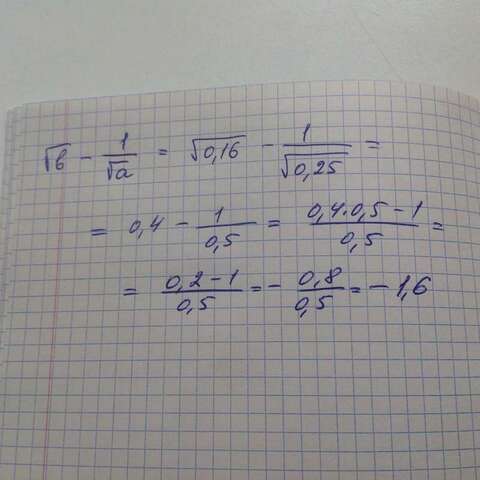 √в − 1/√a = √0,16 − 1/√0,25 =
= 0,4 − 1/0,5 = (0,4·0,5 − 1)/0,5 =
= (0,2 − 1)/0,5 = − 0,8/0,5 = − 1,6